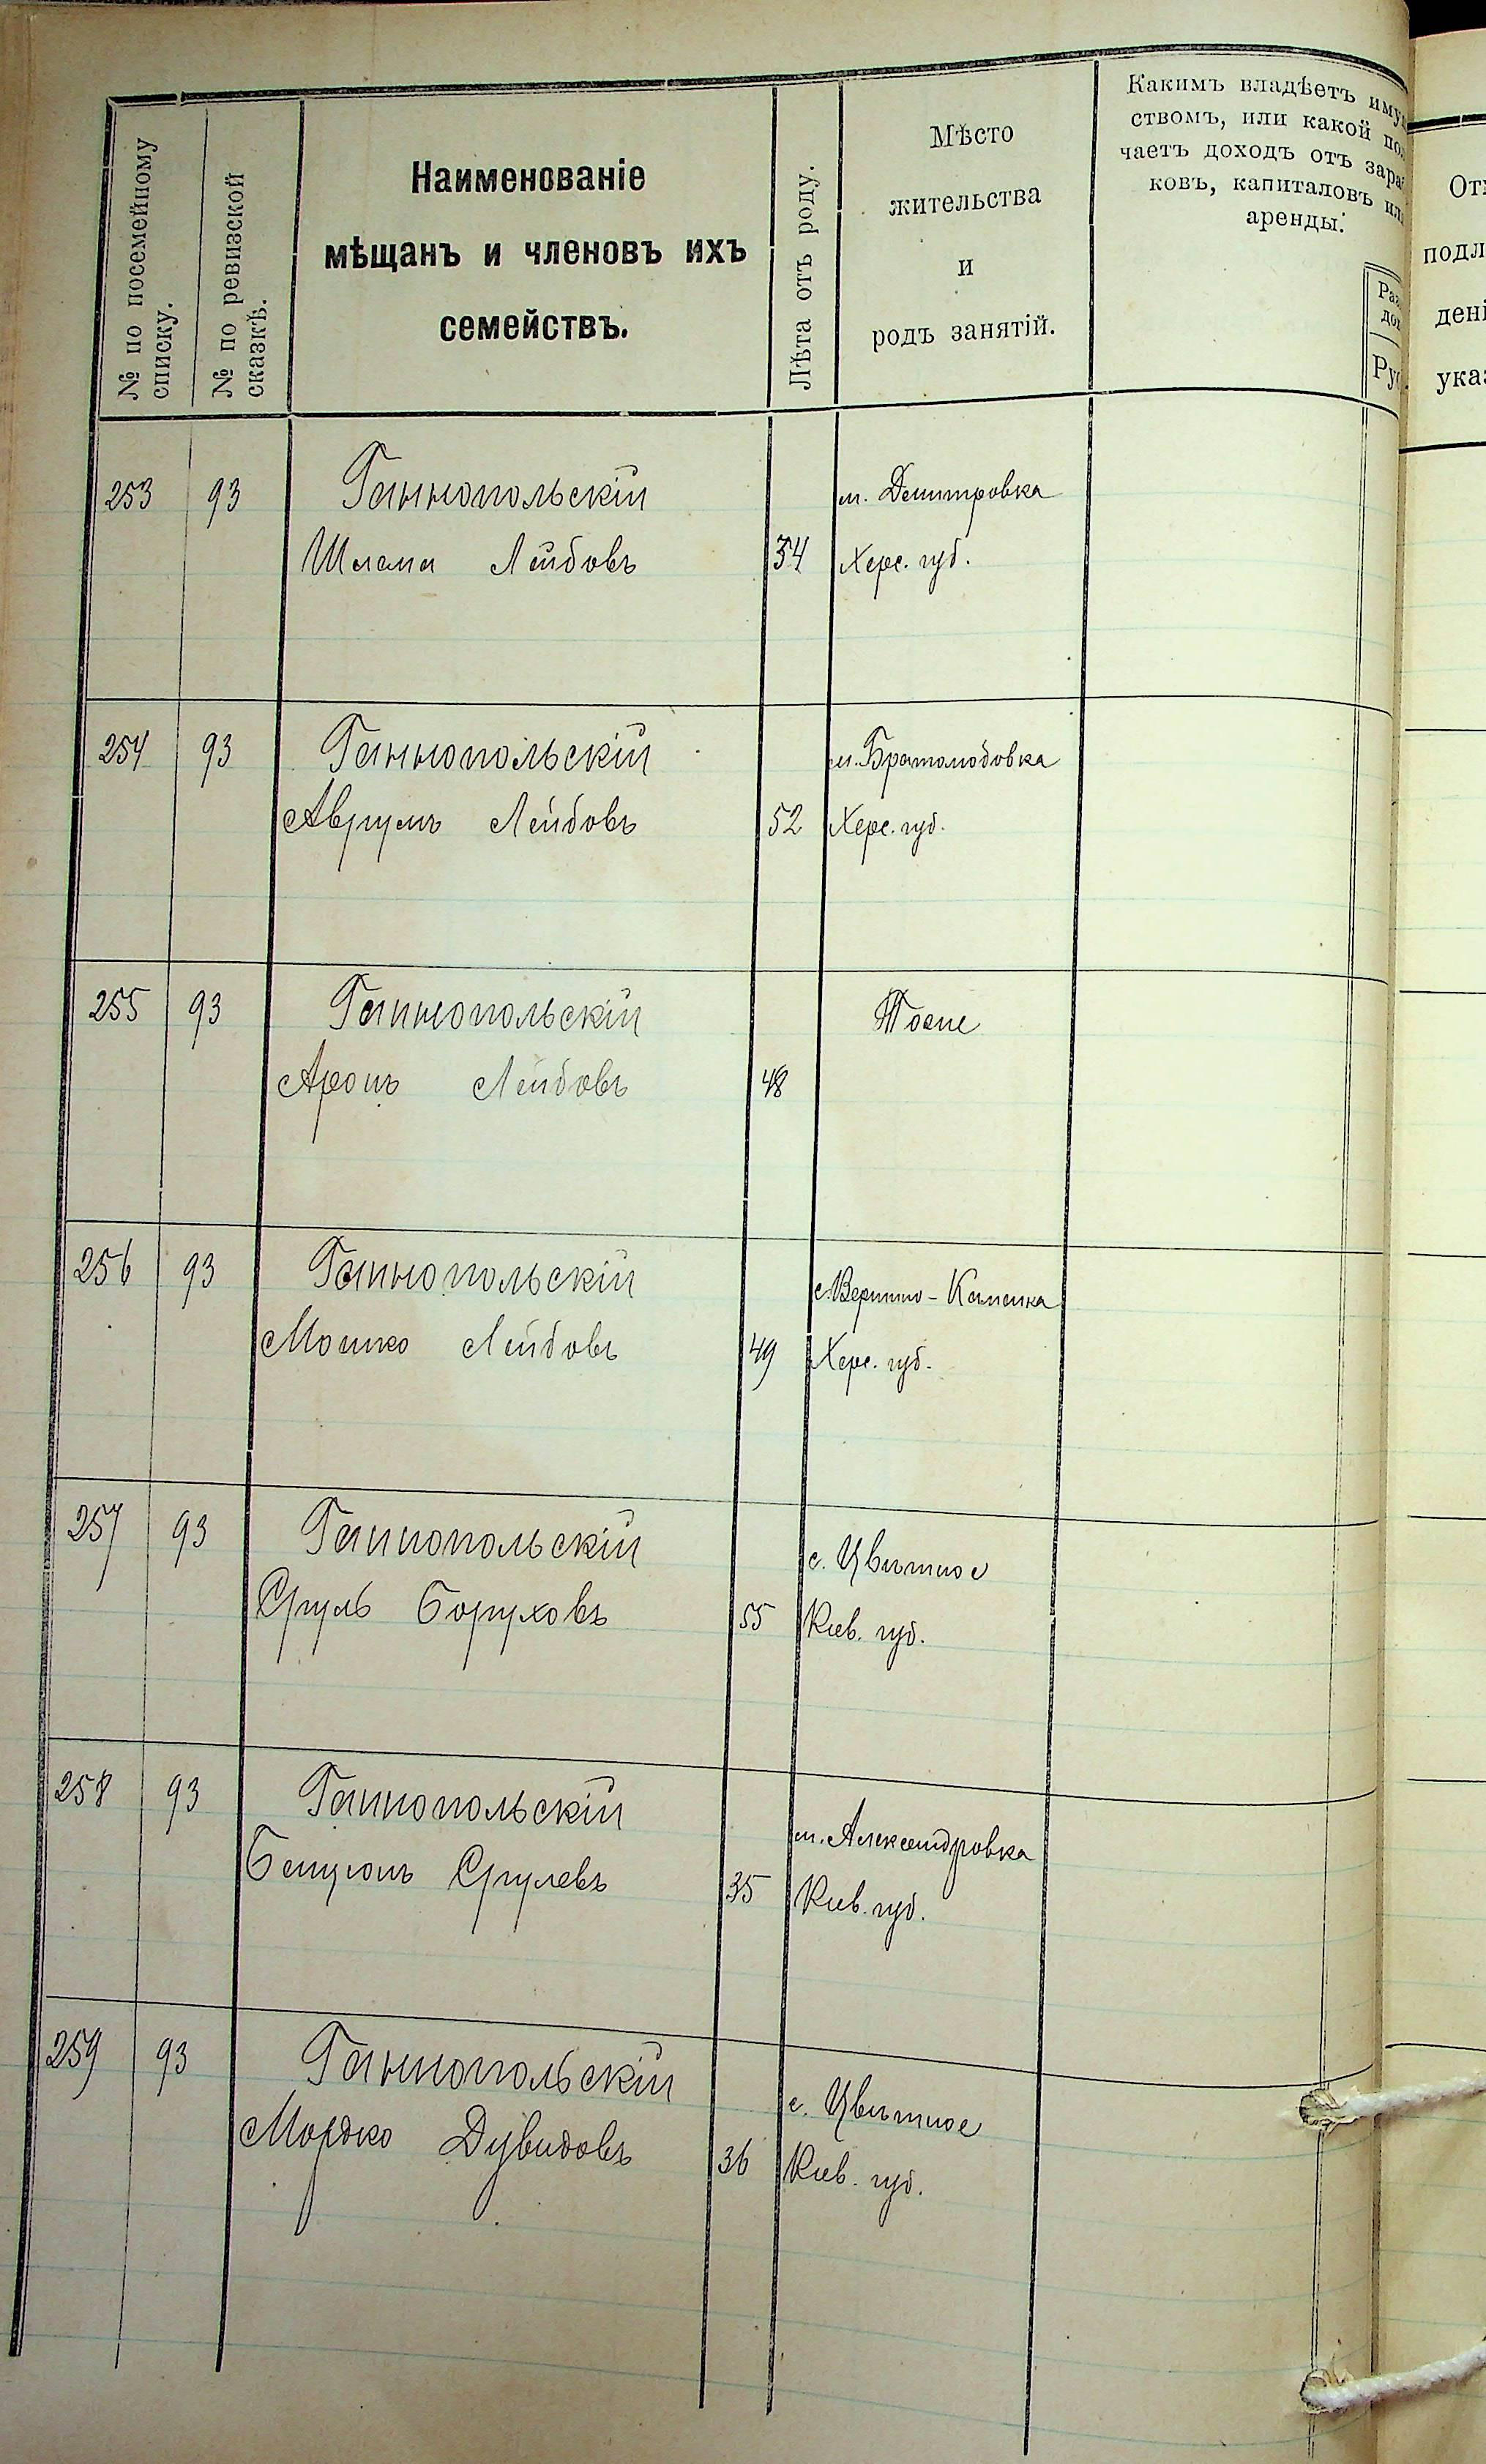 № по посемейному
списку.
№ по ревизской
сказкѣ.
Наименованіе
мѣщанъ и членовъ ихъ
семействъ.
Лѣта отъ роду.
Мѣсто
жительства
и
родъ занятій.
Какимъ владѣетъ иму
ствомъ, или какой по
чаетъ доходъ отъ зара
ковъ, капиталовъ ил
аренды.
Раз
дох
Ру
От
подл
дені
ука
253 93 Ганнопольскій м. Дмитровка
Шлема Лейбовъ 34 Херс. губ.
254 93 Ганнопольскій м. Братолюбовка
Аврумъ Лейбовъ 52 Херс. губ.
255 93 Ганнопольскій Тоже
Аронъ Лейбовъ 48
256 93 Ганнопольскій с. Вершино-Каменка
Мошко Лейбовъ 49 Херс. губ.
257 93 Ганнопольскій с. Цвѣтное
Сруль Боруховъ 55 Кіев. губ.
258 93 Ганнопольскій м. Александровка
Бенціонъ Срулевъ 35 Кіев. губ.
259 93 Ганнопольскій с. Цвѣтное
Мордко Дувидовъ 36 Кіев. губ.